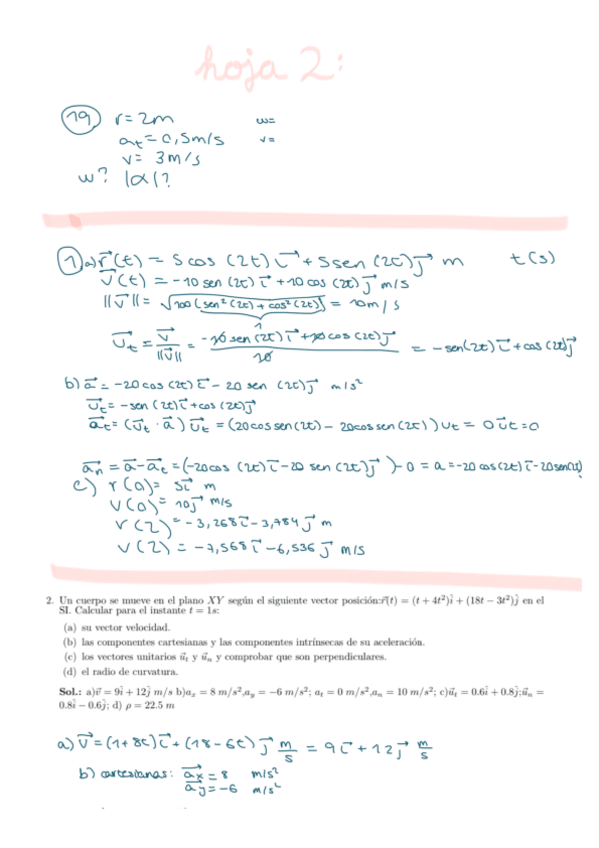 hoja 2:
19) r = 2m ω=
a_t = 0,5m/s v =
v = 3m/s
ω? |α|?
1) a) r⃗(t) = 5cos(2t) i⃗ + 5sen(2t) j⃗ m t(s)
v⃗(t) = -10 sen(2t) i⃗ + 10 cos(2t) j⃗ m/s
||v⃗|| = √100(sen²(2t) + cos²(2t)) = 10m/s
1
U⃗t = v⃗/||v⃗|| = (-10 sen(2t) i⃗ + 10 cos(2t) j⃗)/10 = -sen(2t) i⃗ + cos(2t) j⃗
b) a⃗ = -20 cos(2t) i⃗ - 20 sen (2t) j⃗ m/s²
U⃗t = -sen(2t) i⃗ + cos(2t) j⃗
a⃗t = (U⃗t · a⃗) U⃗t = (20cos sen(2t) - 20cos sen(2t)) Ut = 0 u⃗t = 0
a⃗n = a⃗ - a⃗t = (-20cos (2t) i⃗ - 20 sen(2t) j⃗) - 0 = a = -20 cos(2t) i⃗ - 20sen(2t)
c) r(0) = 5i⃗ m
v(0) = 10j⃗ m/s
r(2) = -3,268 i⃗ - 3,784 j⃗ m
v(2) = -7,568 i⃗ - 6,536 j⃗ m/s
2. Un cuerpo se mueve en el plano XY según el siguiente vector posición:r⃗(t) = (t + 4t²)î + (18t − 3t²)ĵ en el
SI. Calcular para el instante t = 1s:
(a) su vector velocidad.
(b) las componentes cartesianas y las componentes intrínsecas de su aceleración.
(c) los vectores unitarios u⃗t y u⃗n y comprobar que son perpendiculares.
(d) el radio de curvatura.
Sol.: a)v⃗ = 9î + 12ĵ m/s b)ax = 8 m/s²,ay = −6 m/s²; at = 0 m/s²,an = 10 m/s²; c)u⃗t = 0.6î + 0.8ĵ;u⃗n =
0.8î − 0.6ĵ; d) ρ = 22.5 m
a) v⃗ = (1+8t) i⃗ + (18-6t) j⃗ m/s = 9 i⃗ + 12 j⃗ m/s
b) cartesianas: a⃗x = 8 m/s²
a⃗y = -6 m/s²